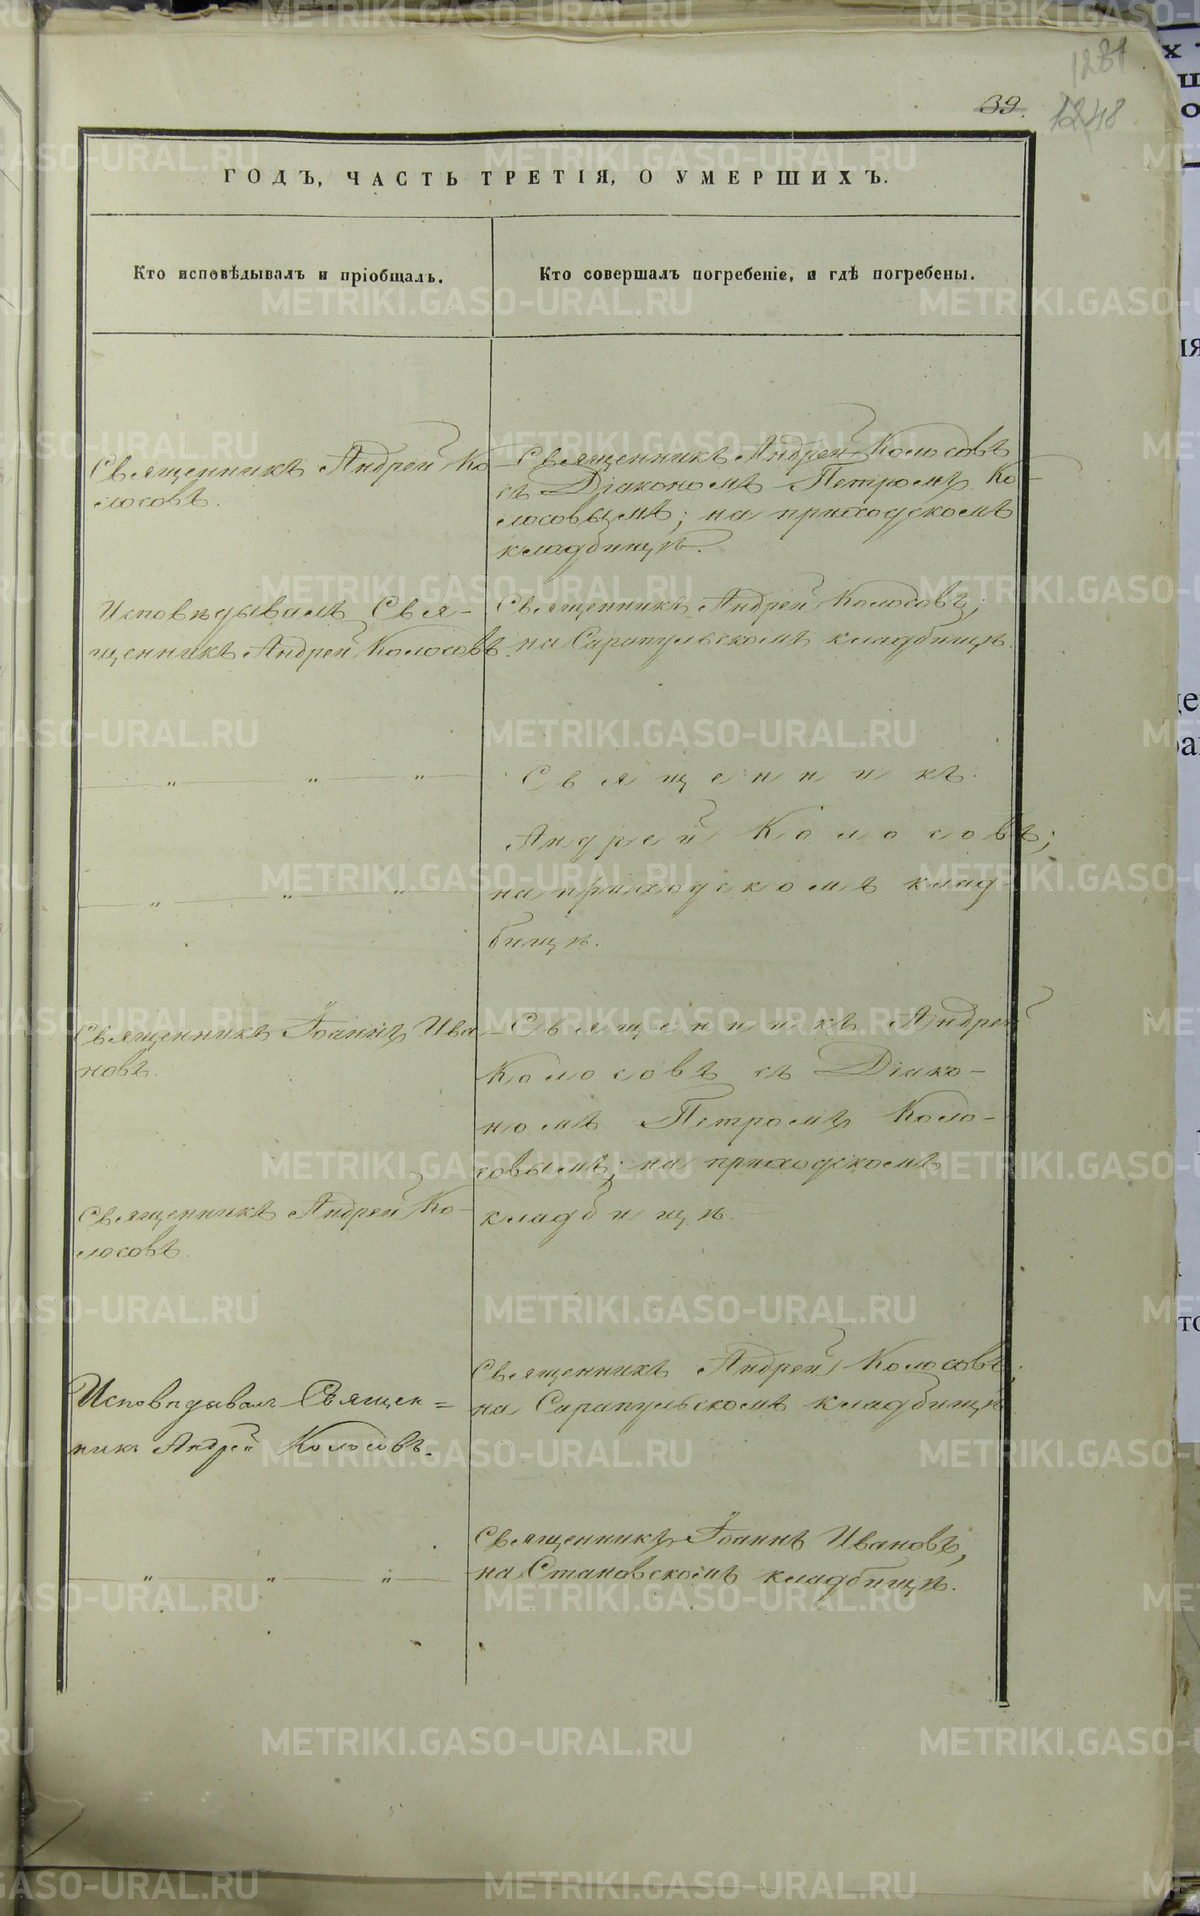 1281
39.
1248
ГОДЪ, ЧАСТЬ ТРЕТІЯ, О УМЕРШИХЪ.
Кто исповѣдывалъ и пріобщалъ.
Кто совершалъ погребеніе, и гдѣ погребены.
Священникъ Андрей Ко-
лосовъ.
Священникъ Андрей Колосовъ
съ Діакономъ Петромъ Ко-
лосовымъ; на приходскомъ
кладбищѣ.
Исповѣдывалъ Свя-
щенникъ Андрей Колосовъ.
Священникъ Андрей Колосовъ;
на Сарапульскомъ кладбищѣ.
" " "
Священникъ
Андрей Колосовъ;
" " "
на приходскомъ клад-
бищѣ.
Священникъ Іоаннъ Ива-
новъ.
Священникъ Андрей
Колосовъ съ Діако-
номъ Петромъ Коло-
совымъ; на приходскомъ
кладбищѣ.
Священникъ Андрей Ко-
лосовъ.
Священникъ Андрей Колосовъ;
на Сарапульскомъ кладбищѣ
Исповѣдавалъ Священ=
никъ Андрей Колосовъ.
Священникъ Іоаннъ Ивановъ,
на Становскомъ кладбищѣ.
" " "
METRIKI.GASO-URAL.RU